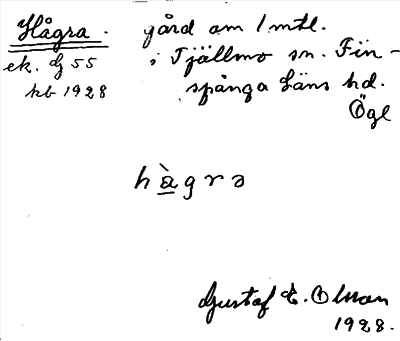 Hågra.
ek. dj 55
kb 1928
gård om 1 mtl.
i Tjällmo sn. Fin-
spånga Läns hd.
Ögl
hàgrə
Gustaf E. Olsson
1928.